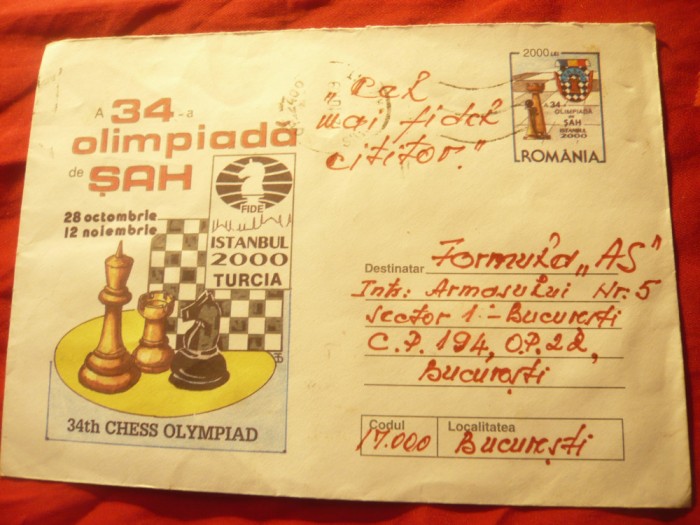 A 34-a
olimpiadă
de ŞAH
28 octombrie
12 noiembrie
FIDE
ISTANBUL
2000
TURCIA
34th CHESS OLYMPIAD
„Cel
mai fidel
cititor."
2000 LEI
A 34-a
OLIMPIADĂ
DE
ŞAH
ISTANBUL
2000
ROMÂNIA
Destinatar Formula „AS"
Intr: Armasului Nr. 5
sector 1 - Bucureşti
C.P. 194, O.P. 22,
Bucureşti
Codul 17.000
Localitatea Bucureşti